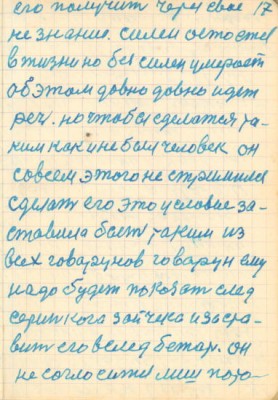 его получит через свое 17
не знание. силен остется
в жизни но без силен умерает
об этом довно довно идет
реч. но чтобы сделатся та-
ким как и не был человек он
совсем этого не стримился
сделат его это условие за-
ставила быт таким из
всех говарунов говарун ему
надо будет показат след
серинкога зайчека и застa-
вит его вслед бежат. он
не согласится лиш пото-